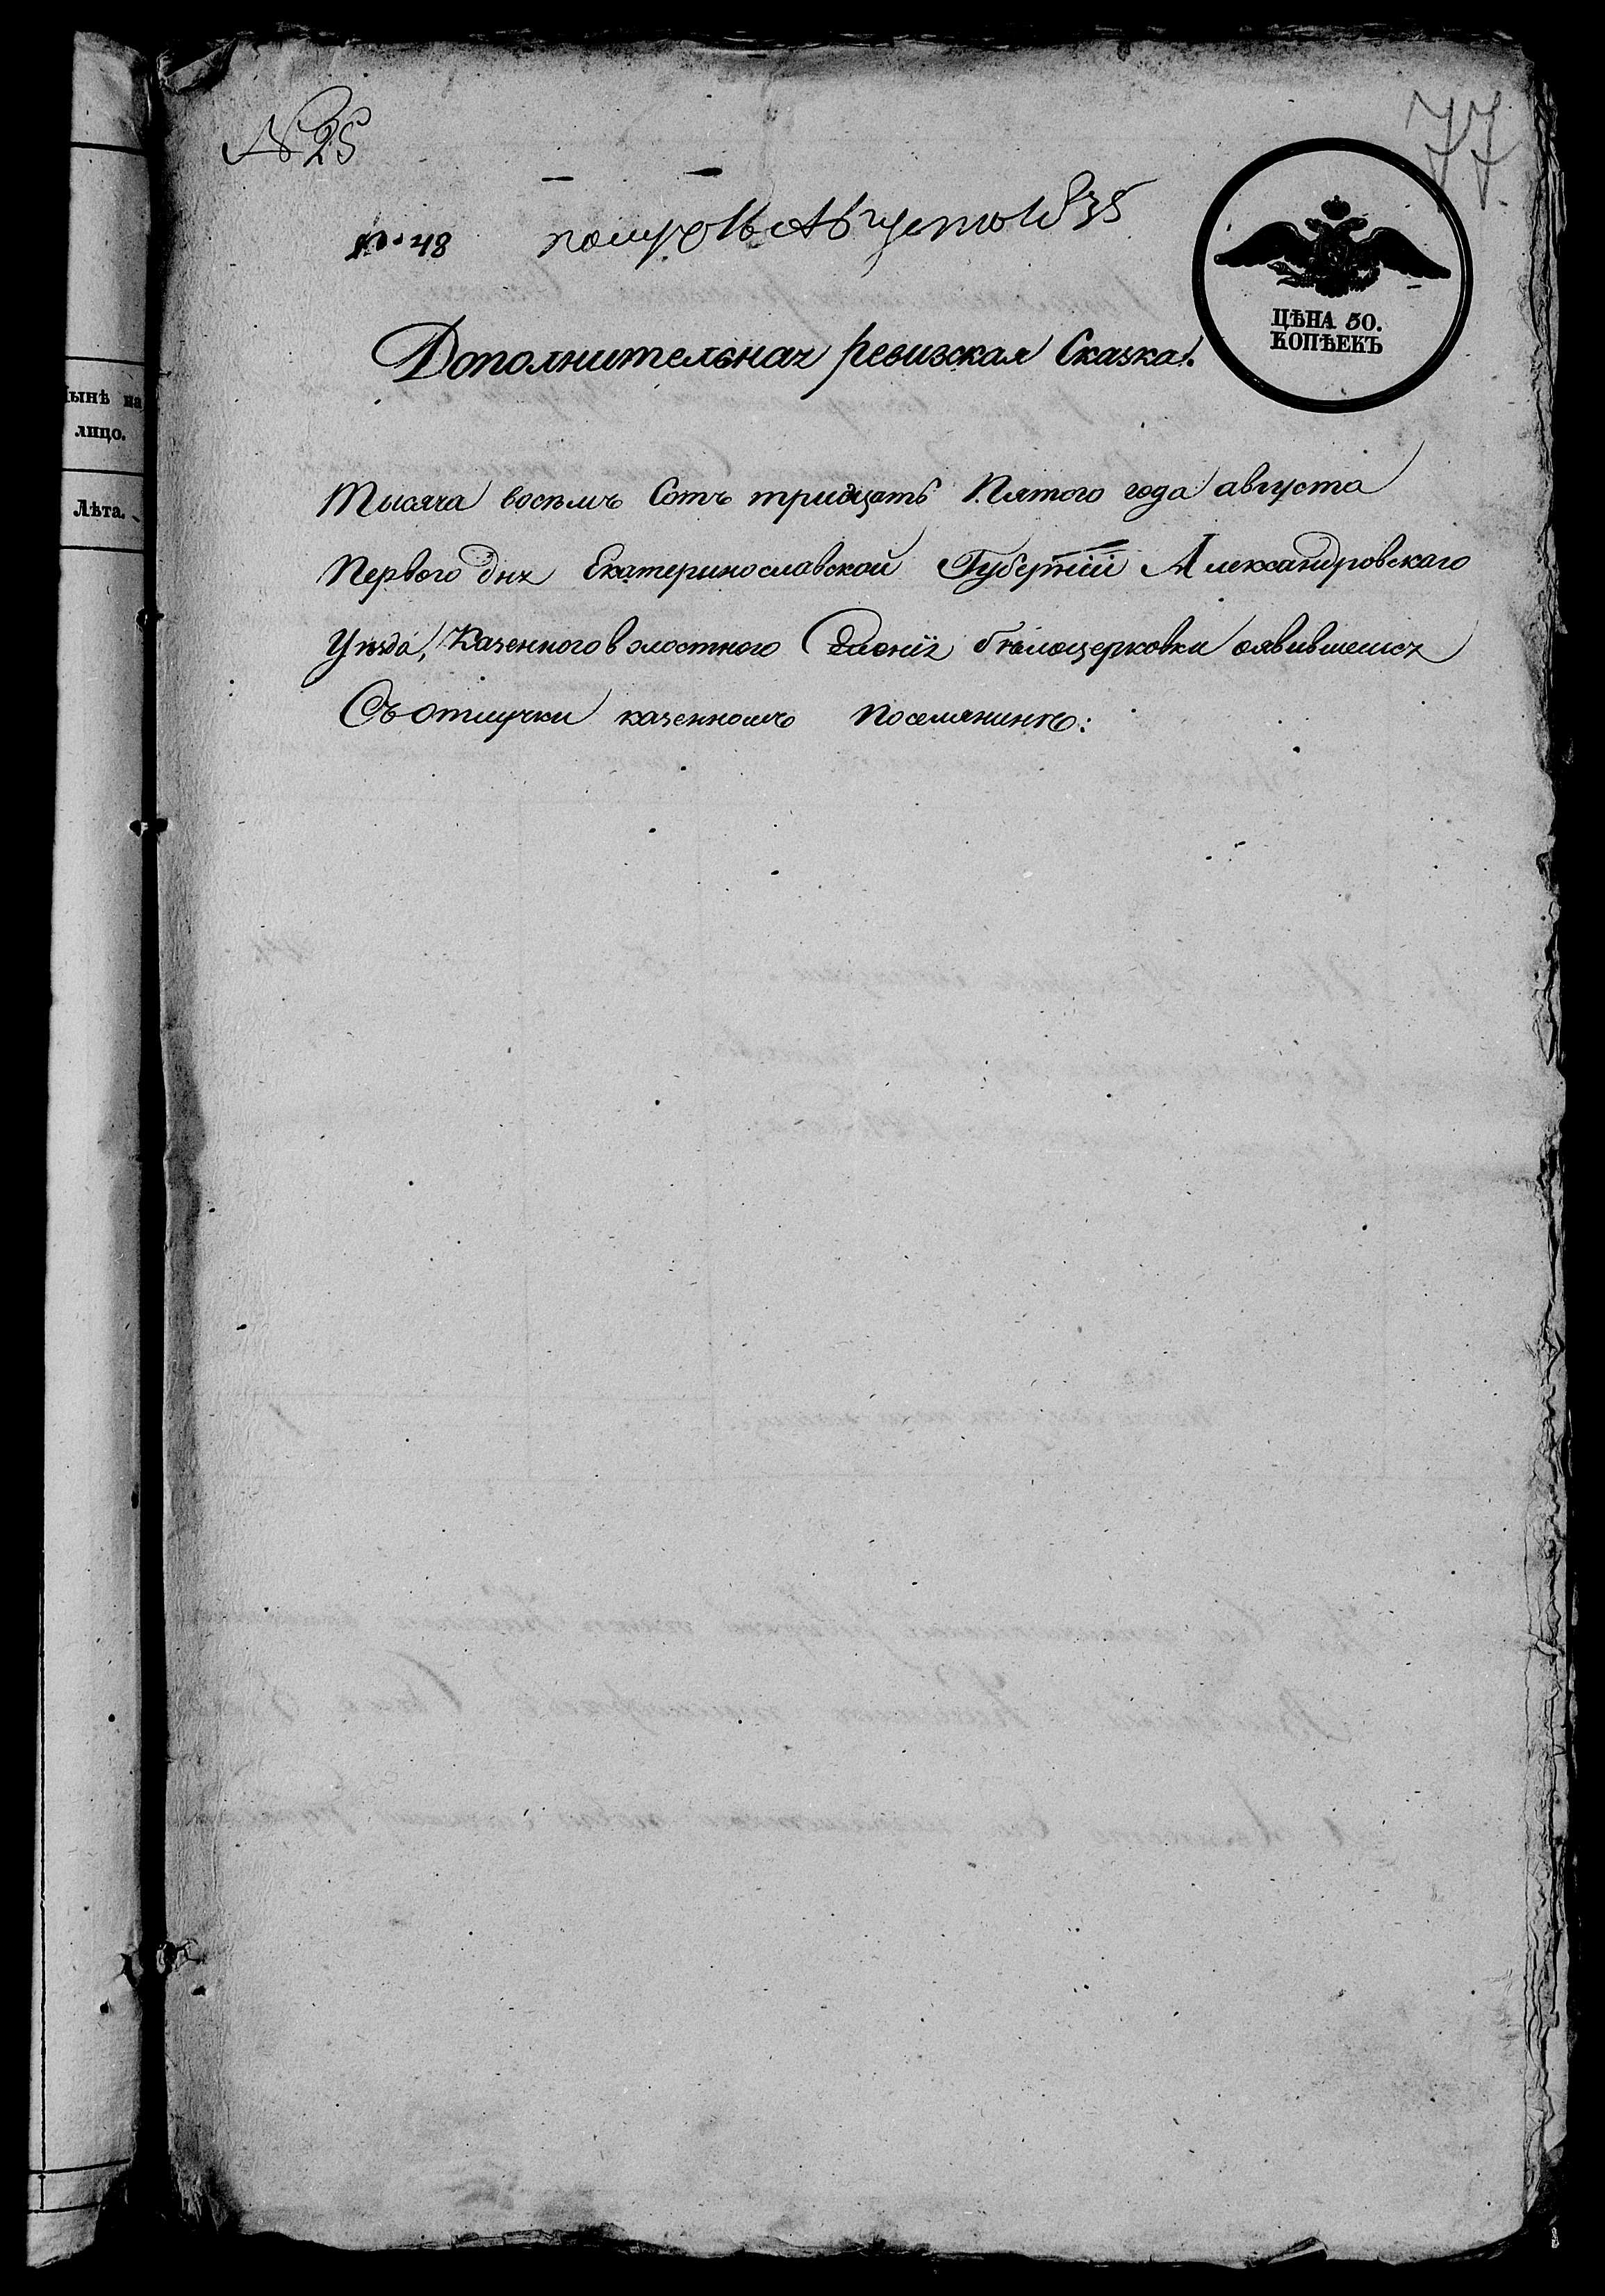 77
№ 25
№ 48 Августа 1835
ЦѢНА 50.
КОПѢЕКЪ
Дополнительная ревизская Сказка.
ынѣ на
лицо.
Лѣта.
Тысяча восемъ Сотъ тридцать Пятого года августа
Первого дня Екатеринославской Губерніи Александровскаго
Уѣзда, Казенного волостного Селенія бѣлоцерковки оявившемся
Съ отлучки казенномъ поселянинѣ: